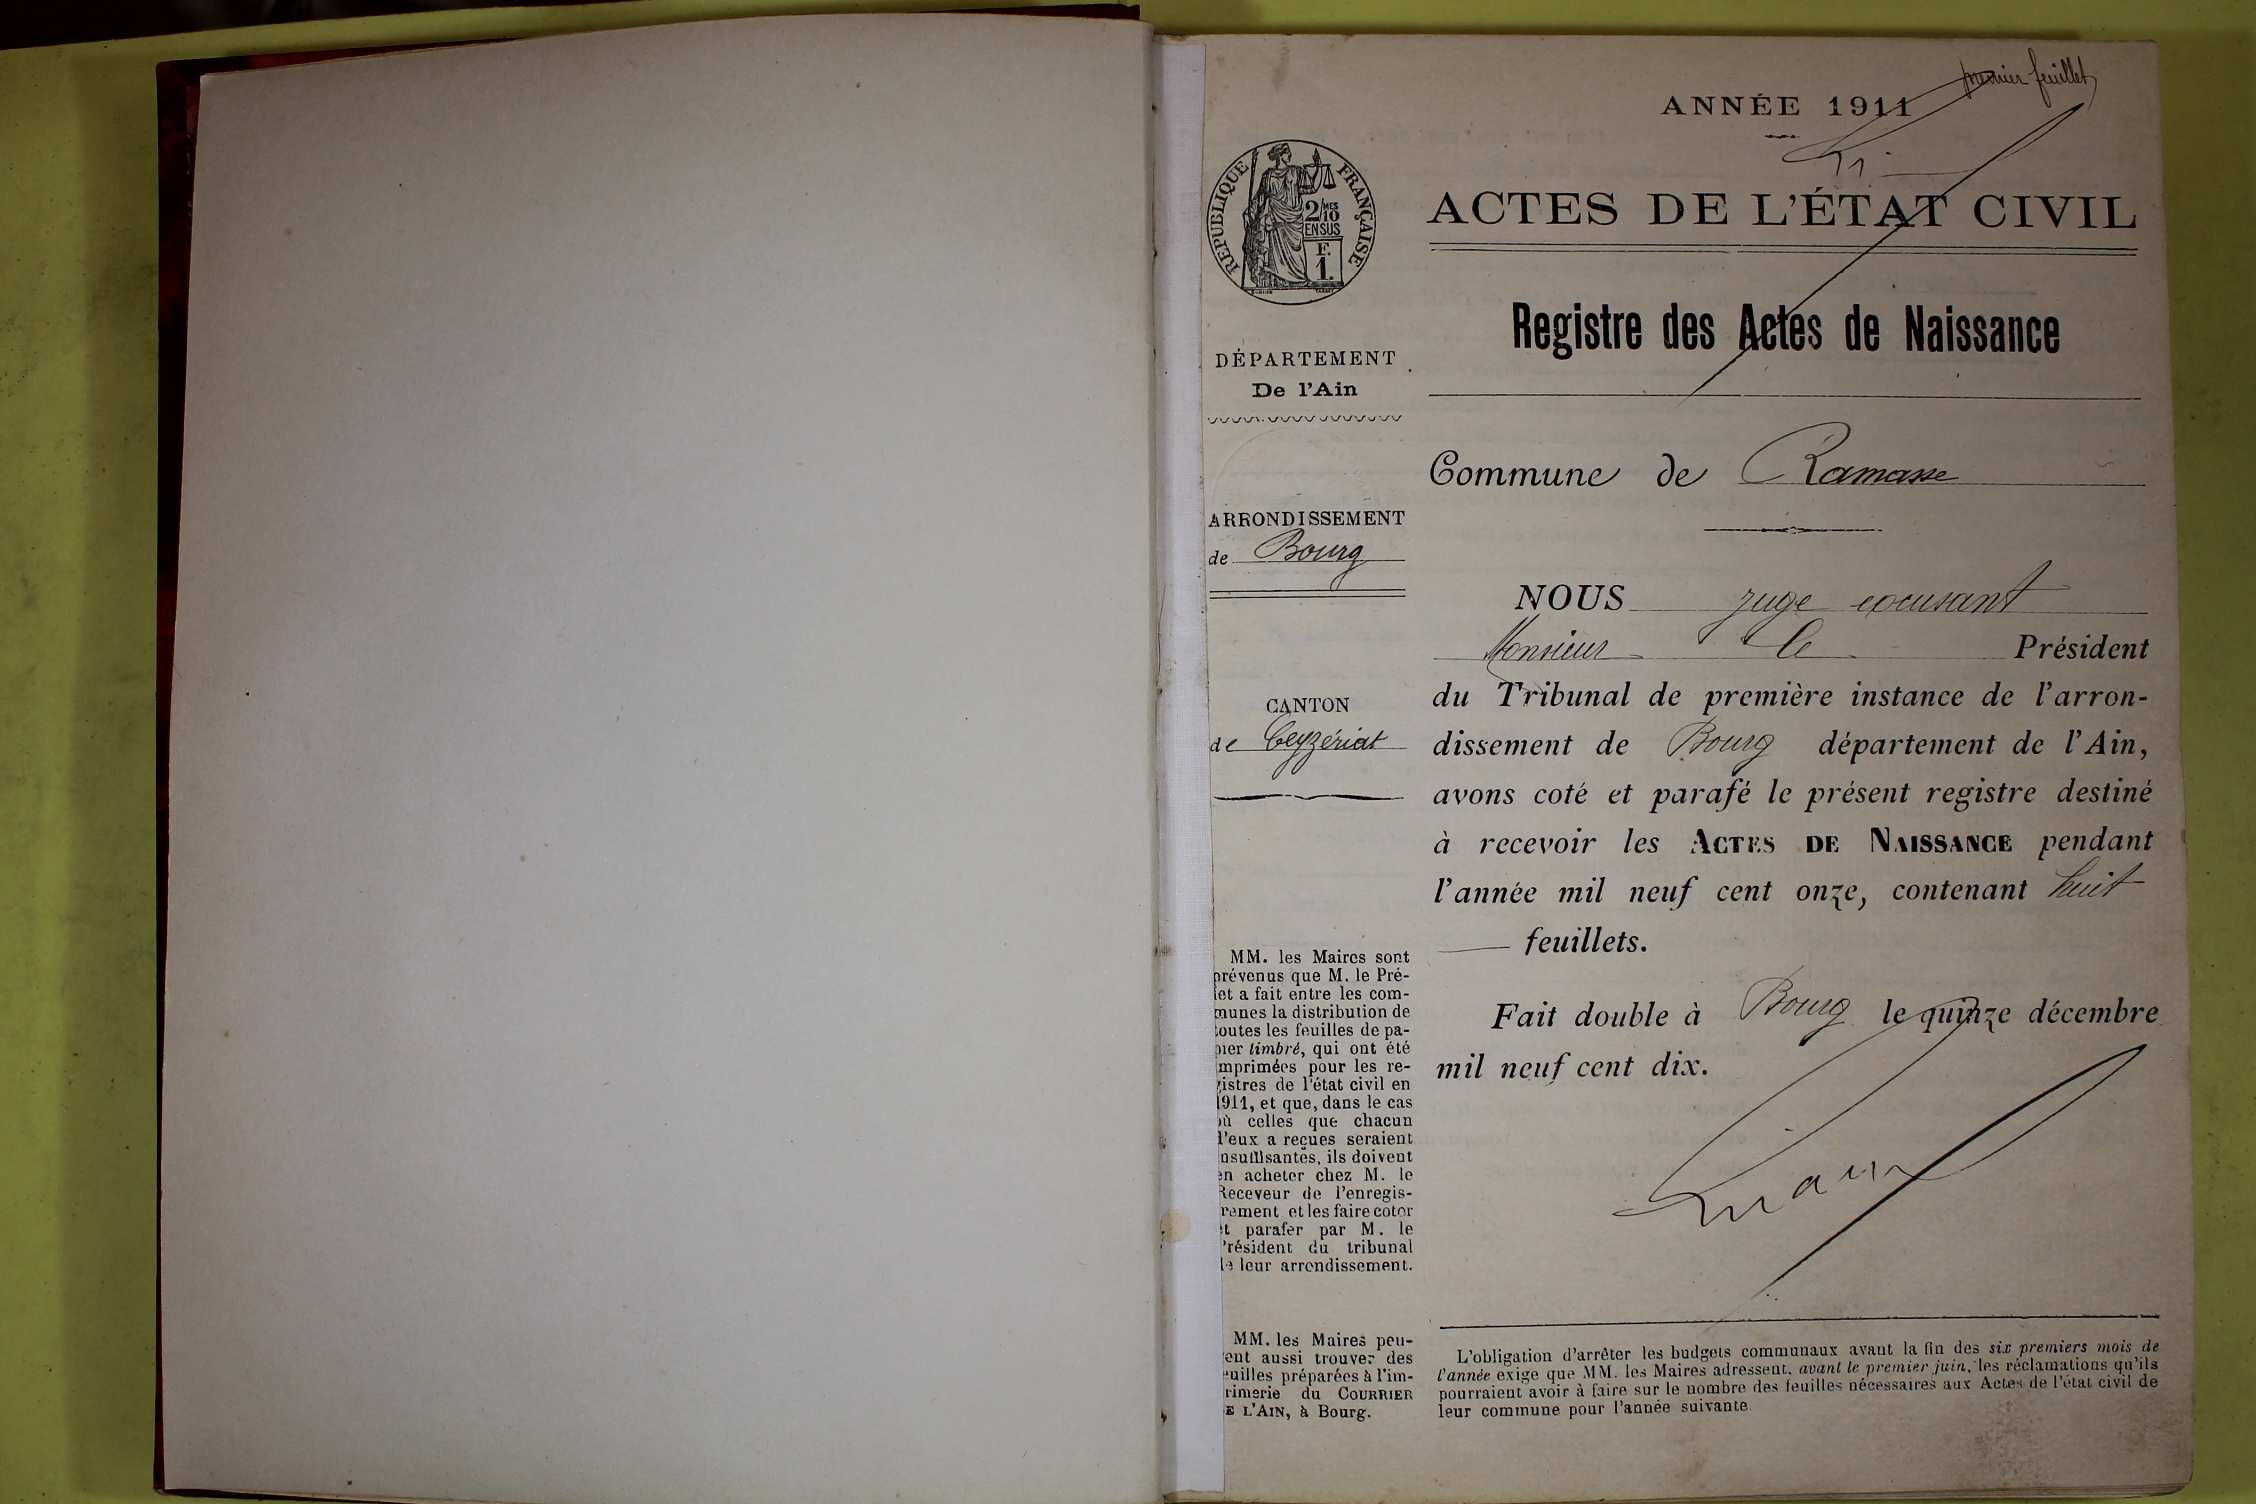 premier feuillet
ANNÉE 1911
RÉPUBLIQUE FRANÇAISE
2/10 MES
EN SUS
F.
1.
ACTES DE L'ÉTAT CIVIL
Registre des Actes de Naissance
DÉPARTEMENT
De l'Ain
Commune de Ramasse
ARRONDISSEMENT
de Bourg
CANTON
de Ceyzériat
NOUS juge excusant
Monsieur le Président
du Tribunal de première instance de l'arron-
dissement de Bourg département de l'Ain,
avons coté et parafé le présent registre destiné
à recevoir les ACTES DE NAISSANCE pendant
l'année mil neuf cent onze, contenant huit
feuillets.
Fait double à Bourg le quinze décembre
mil neuf cent dix.
MM. les Maires sont
prévenus que M. le Pré-
fet a fait entre les com-
munes la distribution de
toutes les feuilles de pa-
pier timbré, qui ont été
imprimées pour les re-
gistres de l'état civil en
1911, et que, dans le cas
où celles que chacun
d'eux a reçues seraient
insuffisantes, ils doivent
en acheter chez M. le
Receveur de l'enregis-
trement et les faire coter
et parafer par M. le
Président du tribunal
de leur arrondissement.
MM. les Maires peu-
vent aussi trouver des
feuilles préparées à l'im-
primerie du COURRIER
DE L'AIN, à Bourg.
L'obligation d'arrêter les budgets communaux avant la fin des six premiers mois de
l'année exige que MM. les Maires adressent, avant le premier juin, les réclamations qu'ils
pourraient avoir à faire sur le nombre des feuilles nécessaires aux Actes de l'état civil de
leur commune pour l'année suivante.